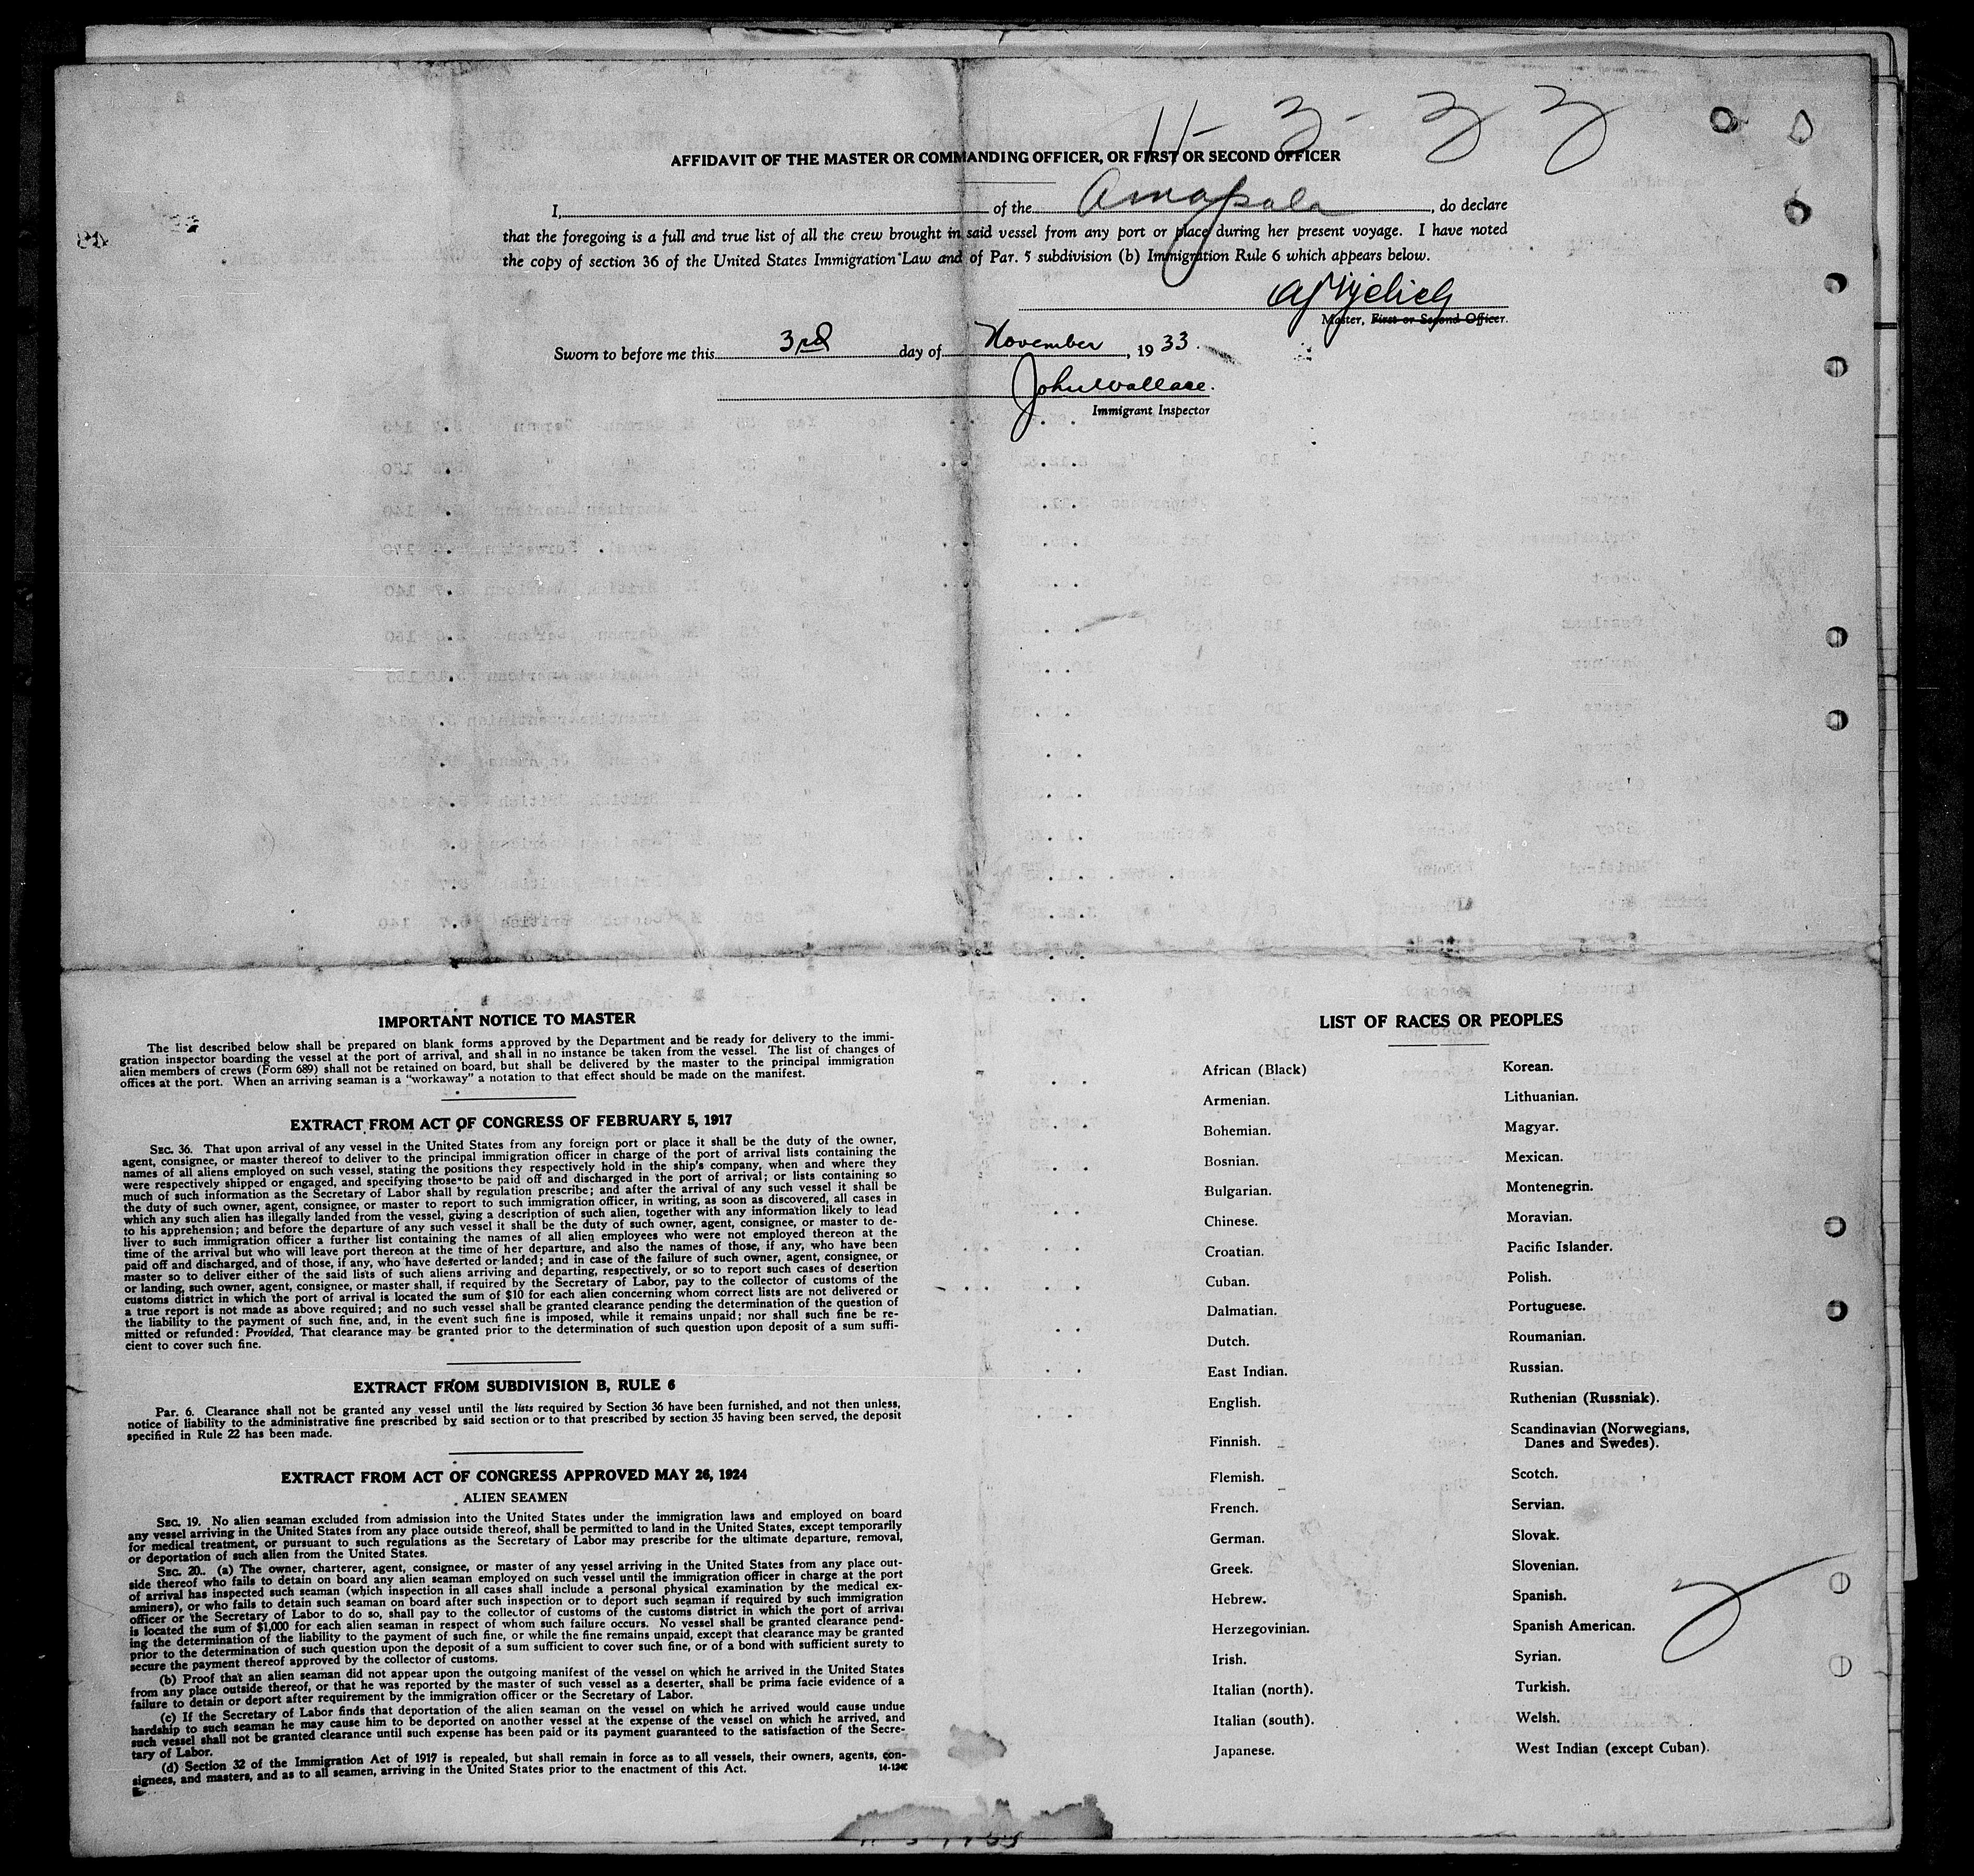 11-3-33
AFFIDAVIT OF THE MASTER OR COMMANDING OFFICER, OR FIRST OR SECOND OFFICER
I, of the Amapala, do declare
that the foregoing is a full and true list of all the crew brought in said vessel from any port or place during her present voyage. I have noted
the copy of section 36 of the United States Immigration Law and of Par. 5 subdivision (b) Immigration Rule 6 which appears below.
Master, First or Second Officer.
Sworn to before me this 3rd day of November, 1933.
John Wallace.
Immigrant Inspector
IMPORTANT NOTICE TO MASTER
The list described below shall be prepared on blank forms approved by the Department and be ready for delivery to the immi-
gration inspector boarding the vessel at the port of arrival, and shall in no instance be taken from the vessel. The list of changes of
alien members of crews (Form 689) shall not be retained on board, but shall be delivered by the master to the principal immigration
offices at the port. When an arriving seaman is a "workaway" a notation to that effect should be made on the manifest.
EXTRACT FROM ACT OF CONGRESS OF FEBRUARY 5, 1917
SEC. 36. That upon arrival of any vessel in the United States from any foreign port or place it shall be the duty of the owner,
agent, consignee, or master thereof to deliver to the principal immigration officer in charge of the port of arrival lists containing the
names of all aliens employed on such vessel, stating the positions they respectively hold in the ship's company, when and where they
were respectively shipped or engaged, and specifying those to be paid off and discharged in the port of arrival; or lists containing so
much of such information as the Secretary of Labor shall by regulation prescribe; and after the arrival of any such vessel it shall be
the duty of such owner, agent, consignee, or master to report to such immigration officer, in writing, as soon as discovered, all cases in
which any such alien has illegally landed from the vessel, giving a description of such alien, together with any information likely to lead
to his apprehension; and before the departure of any such vessel it shall be the duty of such owner, agent, consignee, or master to de-
liver to such immigration officer a further list containing the names of all alien employees who were not employed thereon at the
time of the arrival but who will leave port thereon at the time of her departure, and also the names of those, if any, who have been
paid off and discharged, and of those, if any, who have deserted or landed; and in case of the failure of such owner, agent, consignee, or
master so to deliver either of the said lists of such aliens arriving and departing, respectively, or so to report such cases of desertion
or landing, such owner, agent, consignee, or master shall, if required by the Secretary of Labor, pay to the collector of customs of the
customs district in which the port of arrival is located the sum of $10 for each alien concerning whom correct lists are not delivered or
a true report is not made as above required; and no such vessel shall be granted clearance pending the determination of the question of
the liability to the payment of such fine, and, in the event such fine is imposed, while it remains unpaid; nor shall such fine be re-
mitted or refunded: Provided, That clearance may be granted prior to the determination of such question upon deposit of a sum suffi-
cient to cover such fine.
EXTRACT FROM SUBDIVISION B, RULE 6
Par. 6. Clearance shall not be granted any vessel until the lists required by Section 36 have been furnished, and not then unless,
notice of liability to the administrative fine prescribed by said section or to that prescribed by section 35 having been served, the deposit
specified in Rule 22 has been made.
EXTRACT FROM ACT OF CONGRESS APPROVED MAY 26, 1924
ALIEN SEAMEN
SEC. 19. No alien seaman excluded from admission into the United States under the immigration laws and employed on board
any vessel arriving in the United States from any place outside thereof, shall be permitted to land in the United States, except temporarily
for medical treatment, or pursuant to such regulations as the Secretary of Labor may prescribe for the ultimate departure, removal,
or deportation of such alien from the United States.
SEC. 20. (a) The owner, charterer, agent, consignee, or master of any vessel arriving in the United States from any place out-
side thereof who fails to detain on board any alien seaman employed on such vessel until the immigration officer in charge at the port
of arrival has inspected such seaman (which inspection in all cases shall include a personal physical examination by the medical ex-
aminers), or who fails to detain such seaman on board after such inspection or to deport such seaman if required by such immigration
officer or the Secretary of Labor to do so, shall pay to the collector of customs of the customs district in which the port of arrival
is located the sum of $1,000 for each alien seaman in respect of whom such failure occurs. No vessel shall be granted clearance pend-
ing the determination of the liability to the payment of such fine, or while the fine remains unpaid, except that clearance may be granted
prior to the determination of such question upon the deposit of a sum sufficient to cover such fine, or of a bond with sufficient surety to
secure the payment thereof approved by the collector of customs.
(b) Proof that an alien seaman did not appear upon the outgoing manifest of the vessel on which he arrived in the United States
from any place outside thereof, or that he was reported by the master of such vessel as a deserter, shall be prima facie evidence of a
failure to detain or deport after requirement by the immigration officer or the Secretary of Labor.
(c) If the Secretary of Labor finds that deportation of the alien seaman on the vessel on which he arrived would cause undue
hardship to such seaman he may cause him to be deported on another vessel at the expense of the vessel on which he arrived, and
such vessel shall not be granted clearance until such expense has been paid or its payment guaranteed to the satisfaction of the Secre-
tary of Labor.
(d) Section 32 of the Immigration Act of 1917 is repealed, but shall remain in force as to all vessels, their owners, agents, con-
signees, and masters, and as to all seamen, arriving in the United States prior to the enactment of this Act.
LIST OF RACES OR PEOPLES
African (Black)
Armenian.
Bohemian.
Bosnian.
Bulgarian.
Chinese.
Croatian.
Cuban.
Dalmatian.
Dutch.
East Indian.
English.
Finnish.
Flemish.
French.
German.
Greek.
Hebrew.
Herzegovinian.
Irish.
Italian (north).
Italian (south).
Japanese.
Korean.
Lithuanian.
Magyar.
Mexican.
Montenegrin.
Moravian.
Pacific Islander.
Polish.
Portuguese.
Roumanian.
Russian.
Ruthenian (Russniak).
Scandinavian (Norwegians,
Danes and Swedes).
Scotch.
Servian.
Slovak.
Slovenian.
Spanish.
Spanish American.
Syrian.
Turkish.
Welsh.
West Indian (except Cuban).